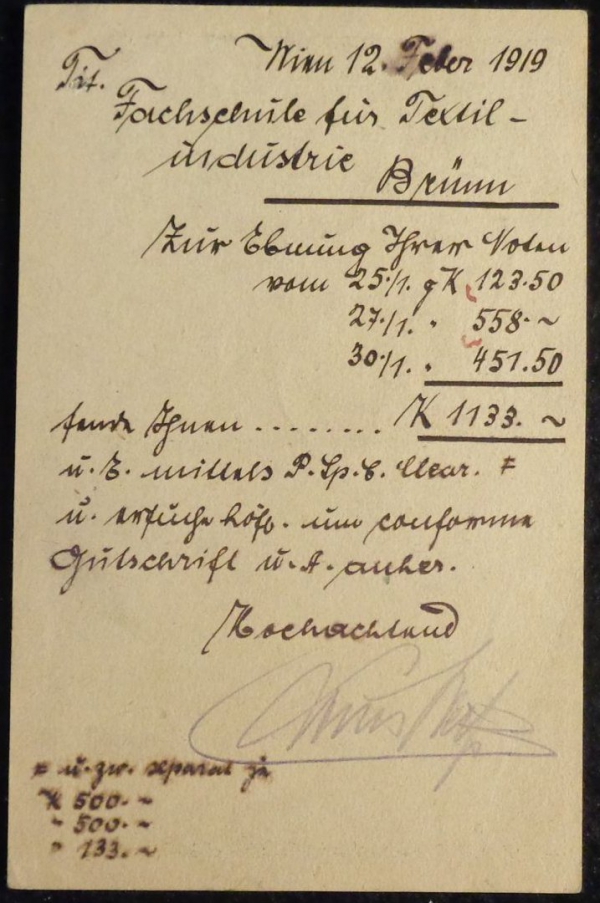 Wien 12. Feber 1919
Tit.
Fachschule für Textil-
industrie Brünn
Zur Ebnung Ihrer Noten
vom 25./1. gK 123.50
27./1. " 558.~
30./1. " 451.50
sende Ihnen ........ K 1133.~
u. Z. mittels P.Sp.C. Clear. ≠
u. ersuche höfl. um conforme
Gutschrift u. A. anher.
Hochachtend
≠ u. zw. separat je
K 500.~
" 500.~
" 133.~